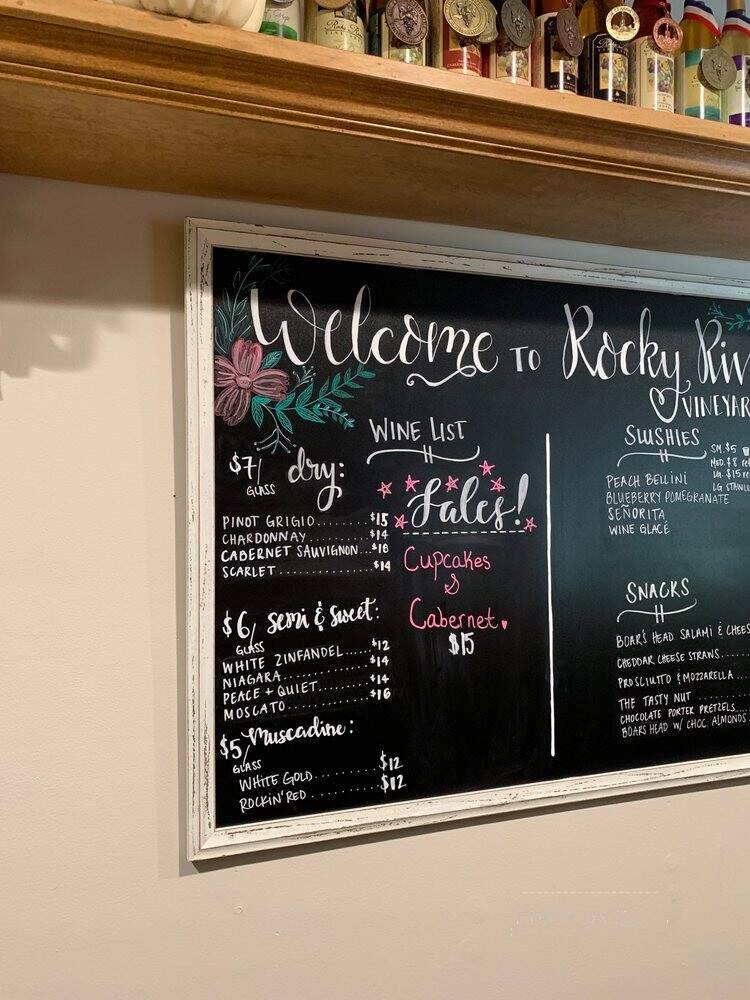 Welcome to Rocky Riv
VINEYAR
WINE LIST
$7/
GLASS
dry:
PINOT GRIGIO........$15
CHARDONNAY..........$14
CABERNET SAUVIGNON...$18
SCARLET..............$14
$6/
GLASS
semi & sweet:
WHITE ZINFANDEL.....$12
NIAGARA.............$14
PEACE + QUIET........$14
MOSCATO.............$16
$5/
GLASS
Muscadine:
WHITE GOLD.........$12
ROCKIN' RED.........$12
Sales!
Cupcakes
&
Cabernet
$15
SLUSHIES
SM. $5
MED. $8
LG. $15
LG STAINL
PEACH BELLINI
BLUEBERRY POMEGRANATE
SEÑORITA
WINE GLACÉ
SNACKS
BOAR'S HEAD SALAMI & CHEES
CHEDDAR CHEESE STRAWS.....
PROSCIUTTO & MOZZARELLA....
THE TASTY NUT.............
CHOCOLATE PORTER PRETZELS...
BOARS HEAD W/ CHOC. ALMONDS